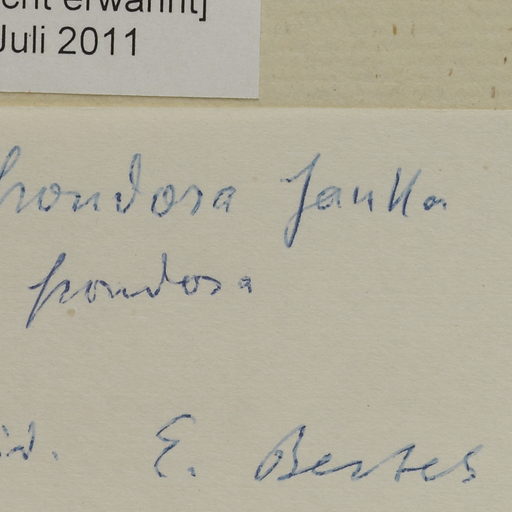 cht erwähnt]
Juli 2011
frondosa Janka
frondosa
id. E. Bertes